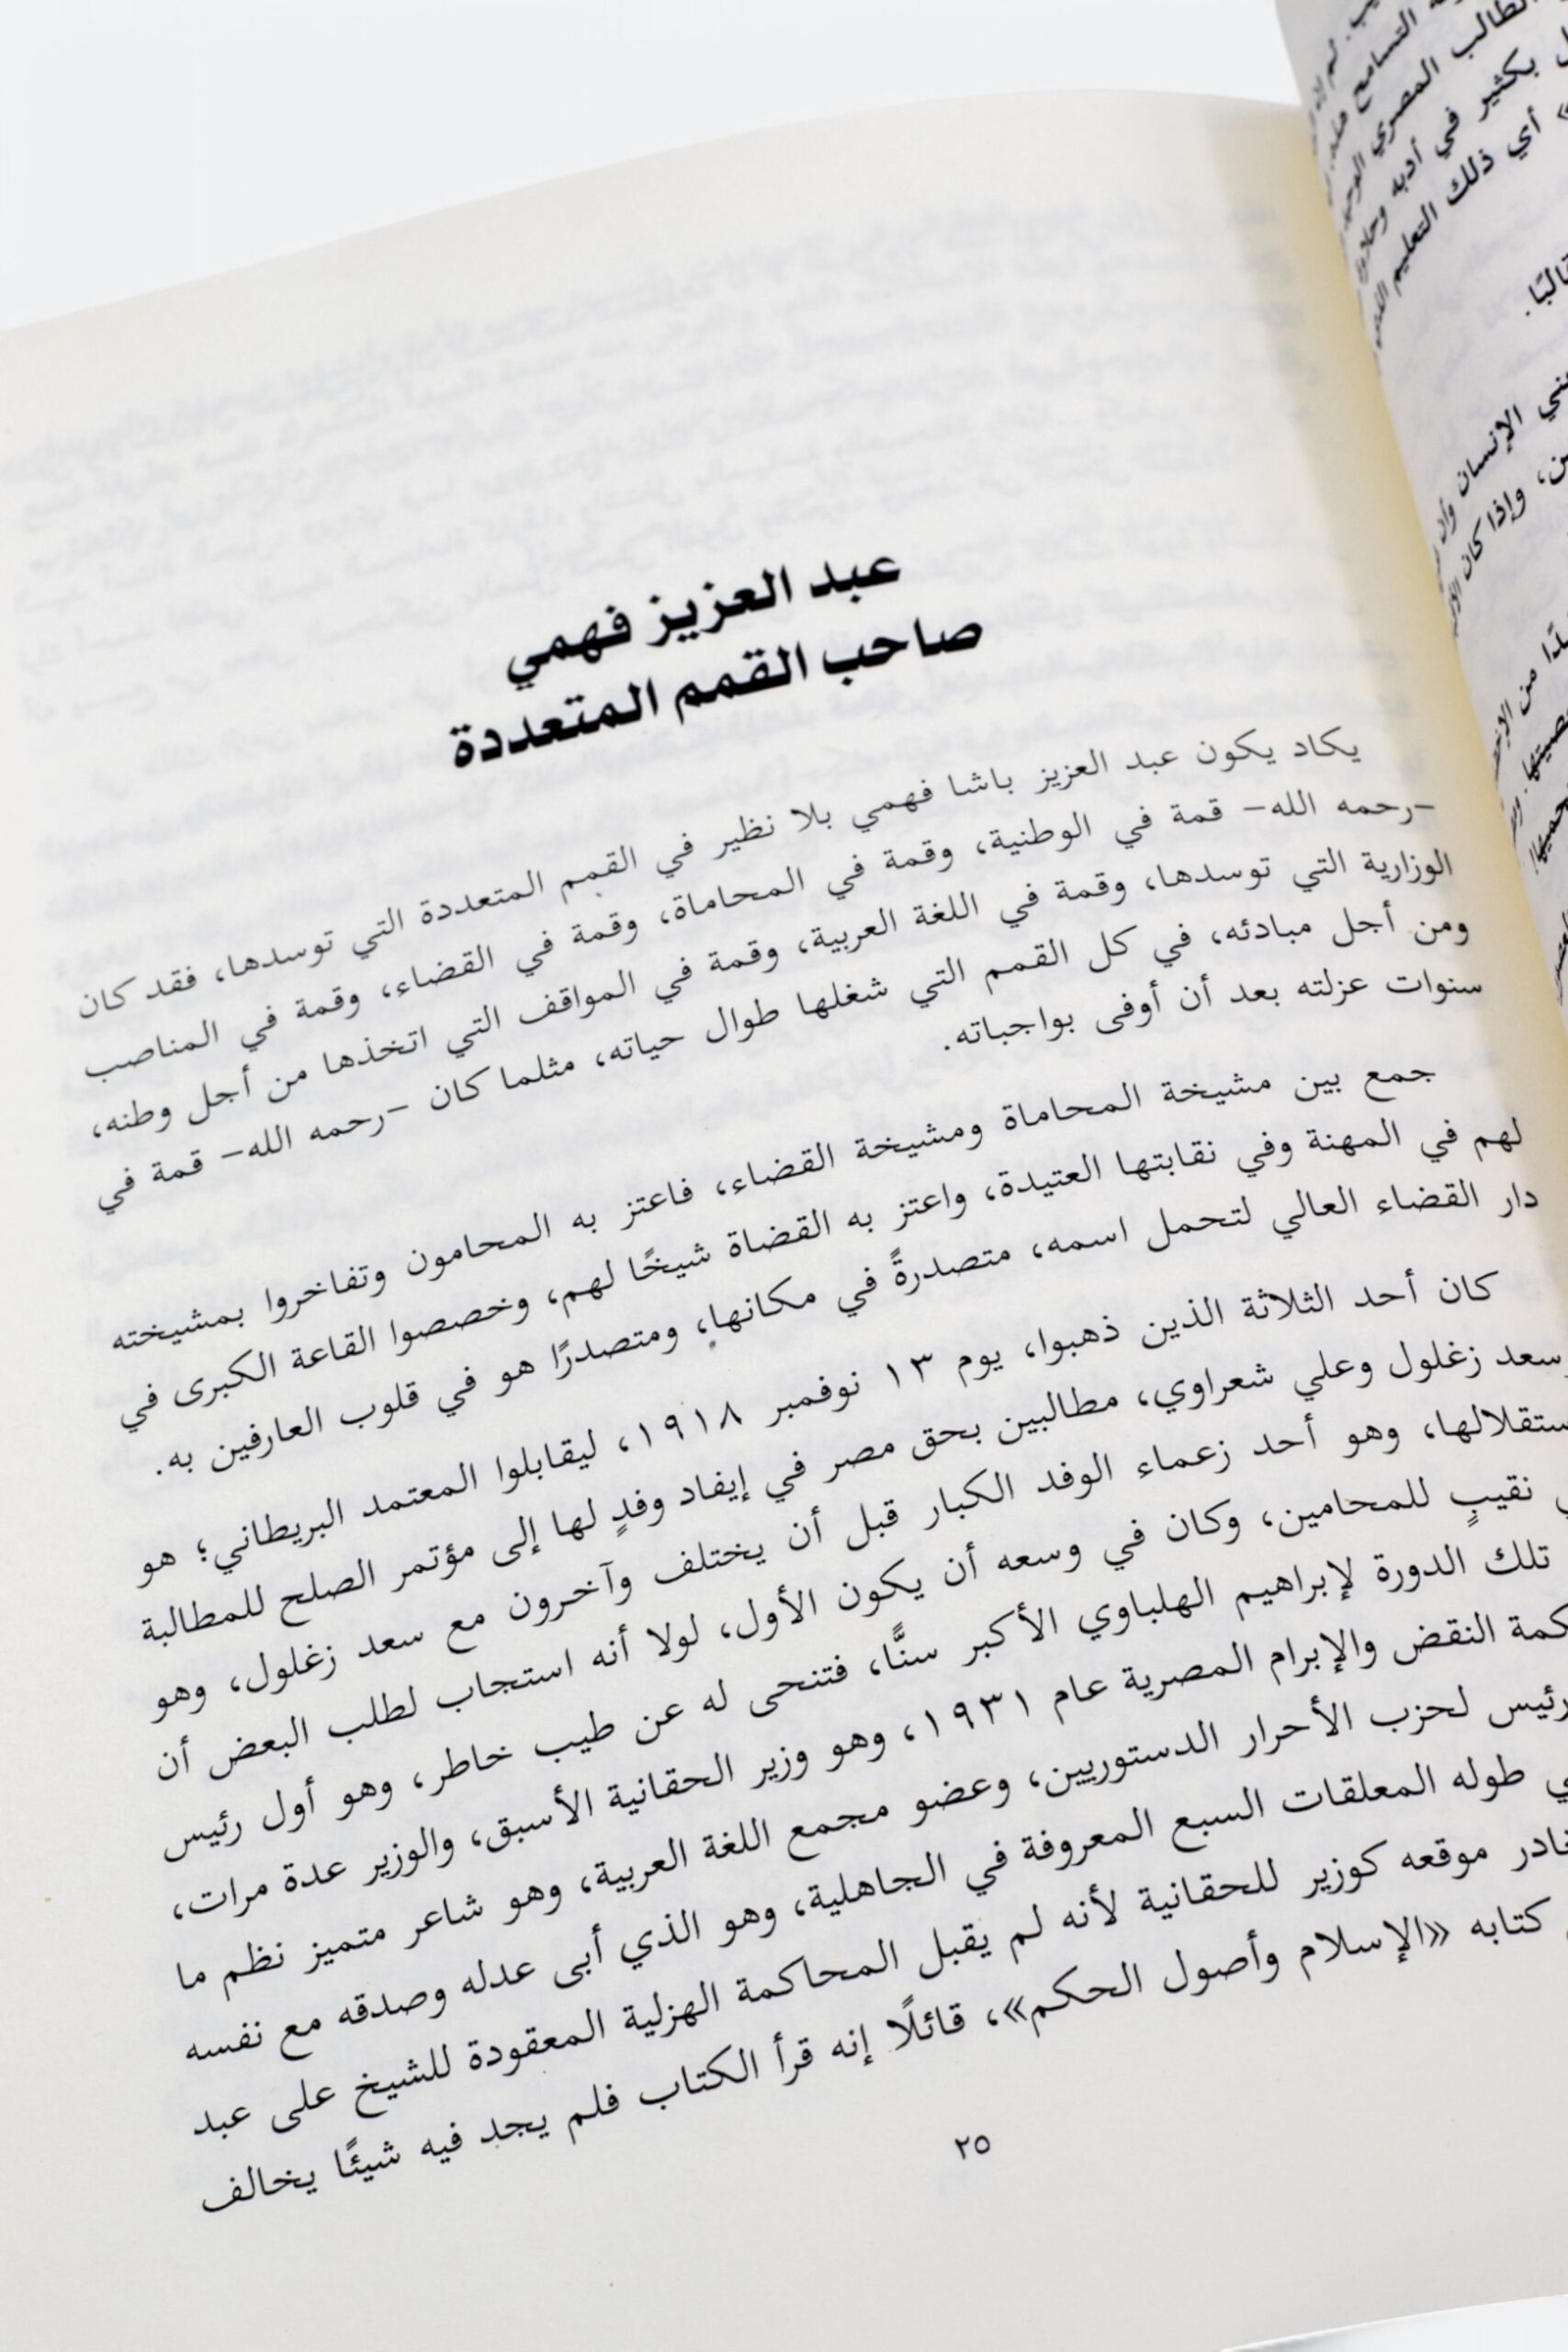 الطالب المصري
بكثير في أدبه
أي ذلك التعليم
الإنسان
وإذا كان
من
عبد العزيز فهمي
صاحب القمم المتعددة
يكاد يكون عبد العزيز باشا فهمي بلا نظير في القمم المتعددة التي توسدها، فقد كان
-رحمه الله- قمة في الوطنية، وقمة في المحاماة، وقمة في القضاء، وقمة في المناصب
الوزارية التي توسدها، وقمة في اللغة العربية، وقمة في المواقف التي اتخذها من أجل وطنه،
ومن أجل مبادئه، في كل القمم التي شغلها طوال حياته، مثلما كان -رحمه الله- قمة في
سنوات عزلته بعد أن أوفى بواجباته.
جمع بين مشيخة المحاماة ومشيخة القضاء، فاعتز به المحامون وتفاخروا بمشيخته
لهم في المهنة وفي نقابتها العتيدة، واعتز به القضاة شيخًا لهم، وخصصوا القاعة الكبرى في
دار القضاء العالي لتحمل اسمه، متصدرةً في مكانها، ومتصدرًا هو في قلوب العارفين به.
كان أحد الثلاثة الذين ذهبوا، يوم ١٣ نوفمبر ١٩١٨، ليقابلوا المعتمد البريطاني؛ هو
سعد زغلول وعلي شعراوي، مطالبين بحق مصر في إيفاد وفدٍ لها إلى مؤتمر الصلح للمطالبة
ستقلالها، وهو أحد زعماء الوفد الكبار قبل أن يختلف وآخرون مع سعد زغلول، وهو
نقيبٍ للمحامين، وكان في وسعه أن يكون الأول، لولا أنه استجاب لطلب البعض أن
تلك الدورة لإبراهيم الهلباوي الأكبر سنًّا، فتنحى له عن طيب خاطر، وهو أول رئيس
كمة النقض والإبرام المصرية عام ١٩٣١، وهو وزير الحقانية الأسبق، والوزير عدة مرات،
رئيس لحزب الأحرار الدستوريين، وعضو مجمع اللغة العربية، وهو شاعر متميز نظم ما
طوله المعلقات السبع المعروفة في الجاهلية، وهو الذي أبى عدله وصدقه مع نفسه
ادر موقعه كوزير للحقانية لأنه لم يقبل المحاكمة الهزلية المعقودة للشيخ على عبد
كتابه «الإسلام وأصول الحكم»، قائلًا إنه قرأ الكتاب فلم يجد فيه شيئًا يخالف
٢٥